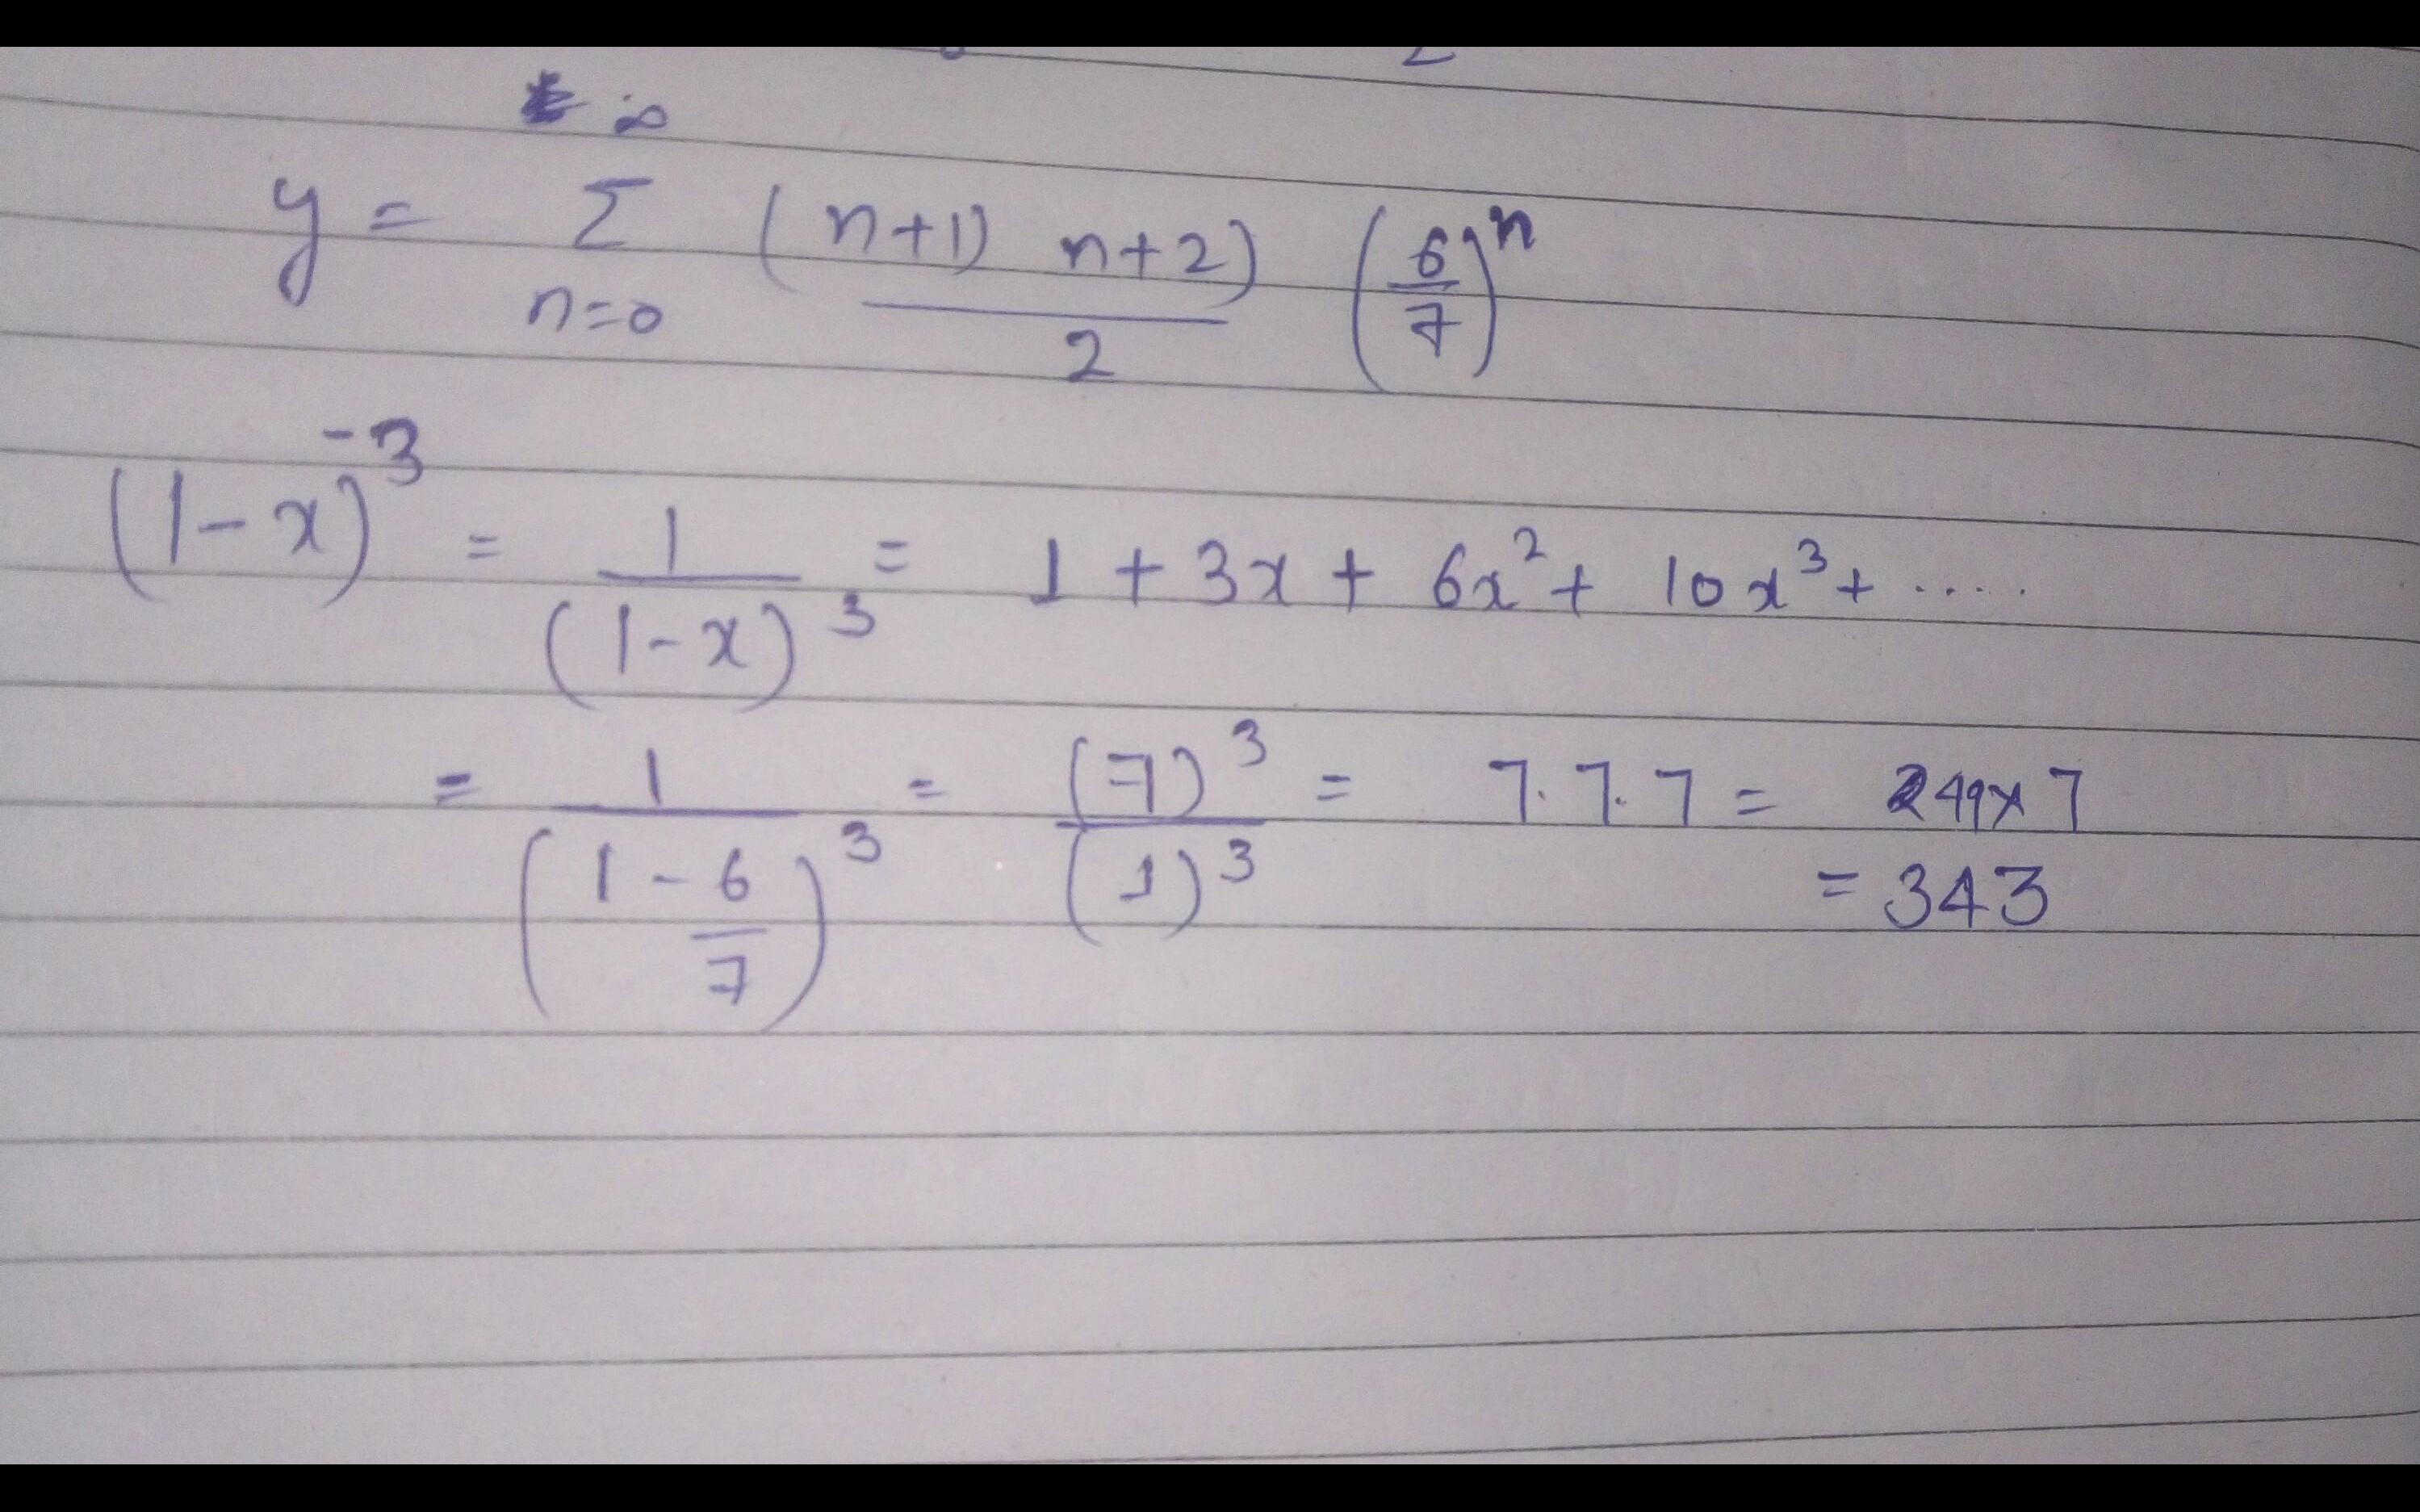 ∞
y = Σ (n+1) n+2) / 2 (6/7)^n
n=0
(1-x)^-3 = 1/(1-x)^3 = 1 + 3x + 6x^2 + 10x^3 + .....
= 1/(1-6/7)^3 = (7)^3/(1)^3 = 7.7.7 = 49x7
= 343